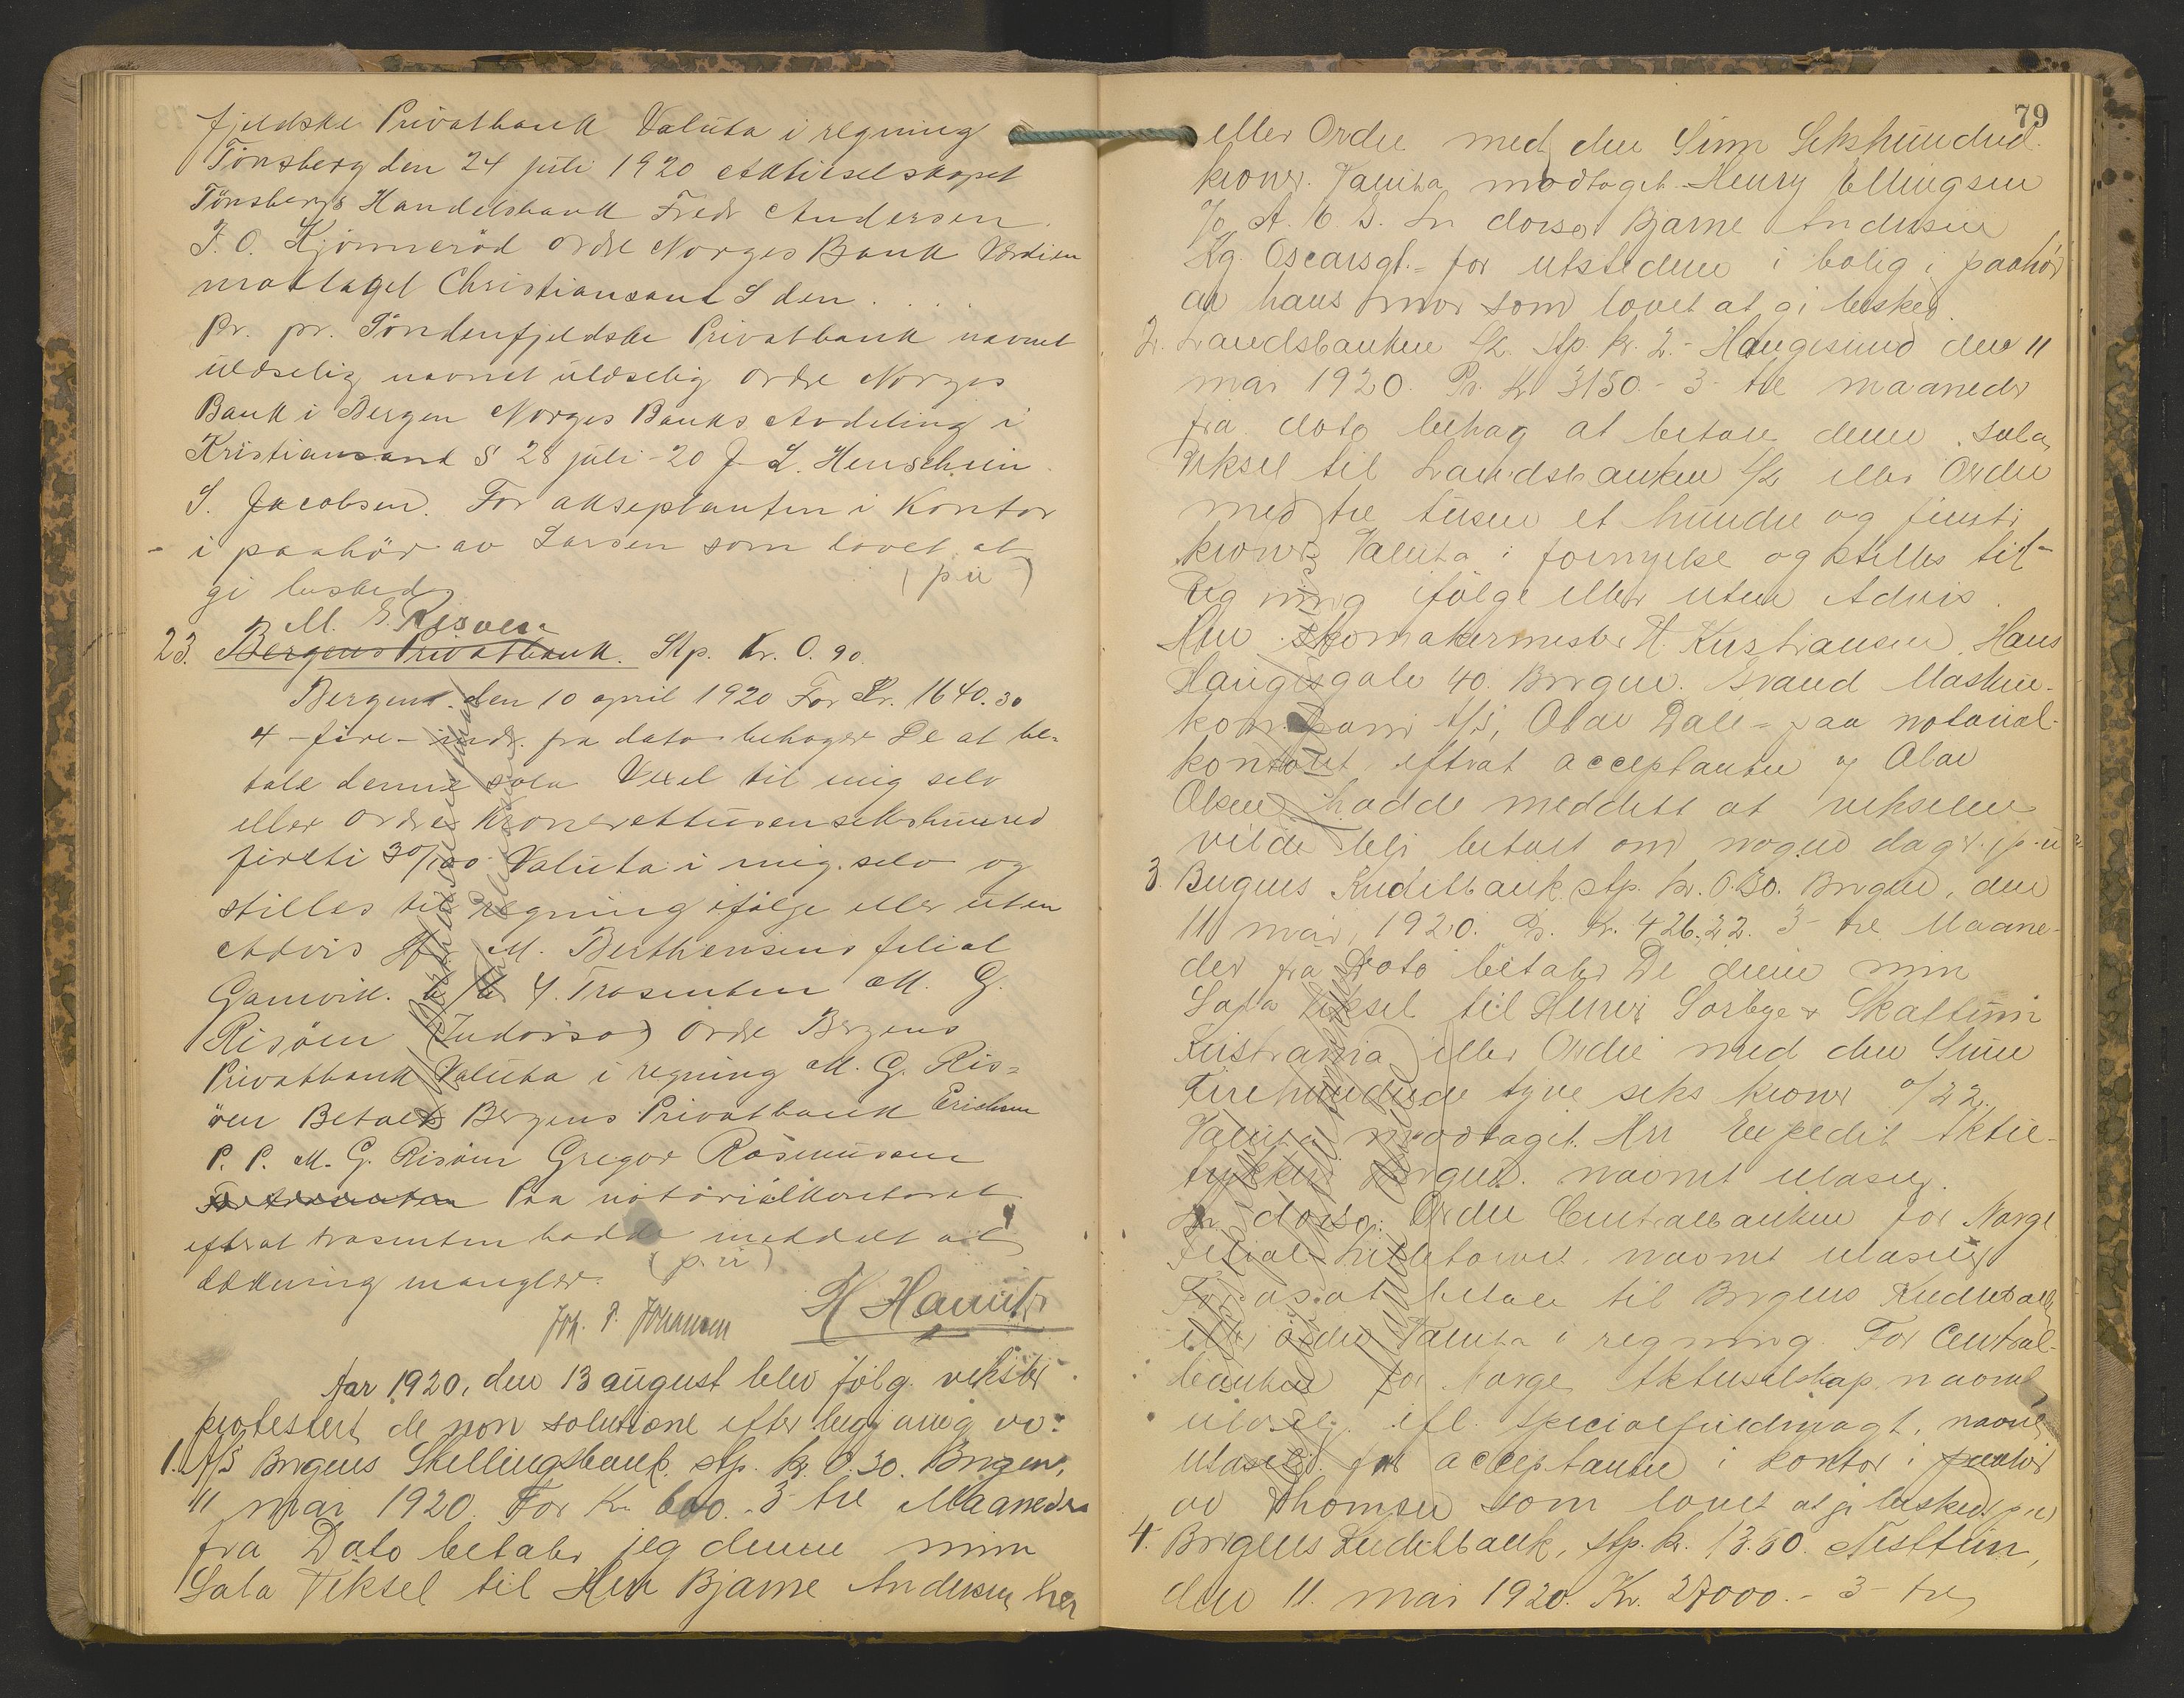 fjeldske Privatbank Valuta i regning
Tönsberg den 24 juli 1920 Aktieselskapet
Tönsbergs Handelsbank Fredr Andersen.
J. O. Kjönneröd Ordre Norges Bank Værdien
mottaget Christiansand S den . . . .
pr. pr. Söndenfjeldske Privatbank navnet
ulæselig navnet ulæselig ordre Norges
Bank i Bergen Norges Banks Avdeling i
Kristiansand S 28 juli -20 J. L. Henschein
S. Jacobsen. For akseptanten i Kontor
i paahör av Larsen som lovet at
gi besked (p.u)
M. G. Risøen
23. Bergens Privatbank. Stp. Kr. 0.90.
Bergen den 10 april 1920 For Kr. 1640.30
4 - fire - mdr. fra dato behager De at be-
tale denne sola Vexel til mig selv
eller Ordre Kroner ettusensekshundred
fireti 30/100 Valuta i mig selv og
stilles til regning ifölge eller uten
Advis M. Berthensens filial
Gamvik. 4. Trasenten M. G.
Risöen (Indorso) Ordre Bergens
Privatbank Valuta i regning M. G. Ris-
öen Betalt Bergens Privatbank Erichsen
P. P. M. G. Risöen Gregor Rasmussen
Paa notarialkontoret
efterat trasenten hadde meddelt at
dækning mangler. (p.u)
Joh. P. Johansen H Hamitz
Aar 1920, den 13 august blev fölg. veksler
protestert de non solutione efter begjæring av:
1. A/S Bergens Skillingsbank. stp. kr. 0.30. Bergen,
11 mai 1920. For Kr. 600.- 3 tre Maaneder
fra Dato betaler jeg denne min
Sola Veksel til Herr Bjarne Andersen her
79
eller Ordre med den Sum Sekshundred
kroner. Valuta modtaget. Henry Ellingsen
In dorso Bjarne Andersen
Kg. Oscarsgt. - for utstederen i bolig i paahör
av hans mor som lovet at gi besked.
2. Landsbanken stp. kr. 2.- Haugesund den 11
mai 1920. Pr. Kr 3150.- 3 - tre maaneder
fra dato behag at betale denne sola
Veksel til Landsbanken eller Ordre
med tre tusen et hundre og femti
kroner Valuta i fornyelse og stilles til
Regning ifölge eller uten Advis.
Herr Skomakermester H. Kristiansen, Hans
Haugesgate 40. Bergen. Grand Maskin-
kompani A/S, Olav Dale - paa notarial-
kontoret efterat acceptanten og Olav
Olsen hadde meddelt at vekselen
vilde bli betalt om nogen dager. (p.u)
3. Bergens Kreditbank stp. kr. 0.30. Bergen, den
11 mai 1920. Pr. Kr. 426.22. 3 - tre Maane-
der fra Dato betaler De denne min
Sola Veksel til Herrer Sørbye & Skattum
Kristiania eller Ordre med den Sum
Firehundrede tyve seks kroner o/22.
Valuta modtaget. Herr Expedit Aktie-
trykkeri Bergen. navnet ulæselig.
In dorso: Ordre Centralbanken for Norge
Filial Lilletorvet. navnet ulæselig
For os at betale til Bergens Kreditbank
eller ordre Valuta i regning. For Central-
banken for Norge Aktieselskap navnet
ulæselig. ifl. specialfuldmagt, navnet
ulæselig. for acceptanten i kontor i paahör
av Thomsen som lovet at gi besked. (p.u)
4. Bergens Kreditbank, stp. kr. 13.50. Nesttun,
den 11. mai 1920. Kr. 27000.- 3 - tre